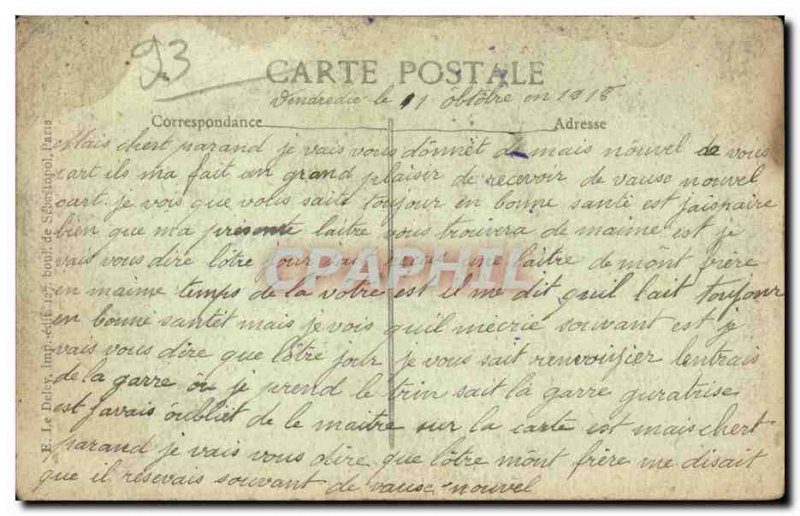 93
CARTE POSTALE
Vendredie le 11 obtobre en 1918
Correspondance Adresse
Mais chert parand je vais vous donnét de mais nouvel de vous
cart ils ma fait un grand plaisir de recevoir de vause nouvel
cart je vois que volus saite toujour en bonne santé est jaispaire
bien que ma presente laitre vous trouvera de maime est je
vais vous dire lôtre jour une laitre de mônt frère
en maime temps de la votre est il me dit quil lait toujour
en bonne santét mais je vois quil mécrie souvant est je
vais vous dire que lôtre jour je vous sait lentrais
de la garre ou je prend le trin sait la garre
est javais oubliet de le maitre sur la carte est mais chert
parand je vais vous dire que lôtre mônt frère me disait
que il resevais souvant de vause nouvel
E. Le Deley, imp.-édit. 127, boul. de Sébastopol, Paris
CPAPHIL